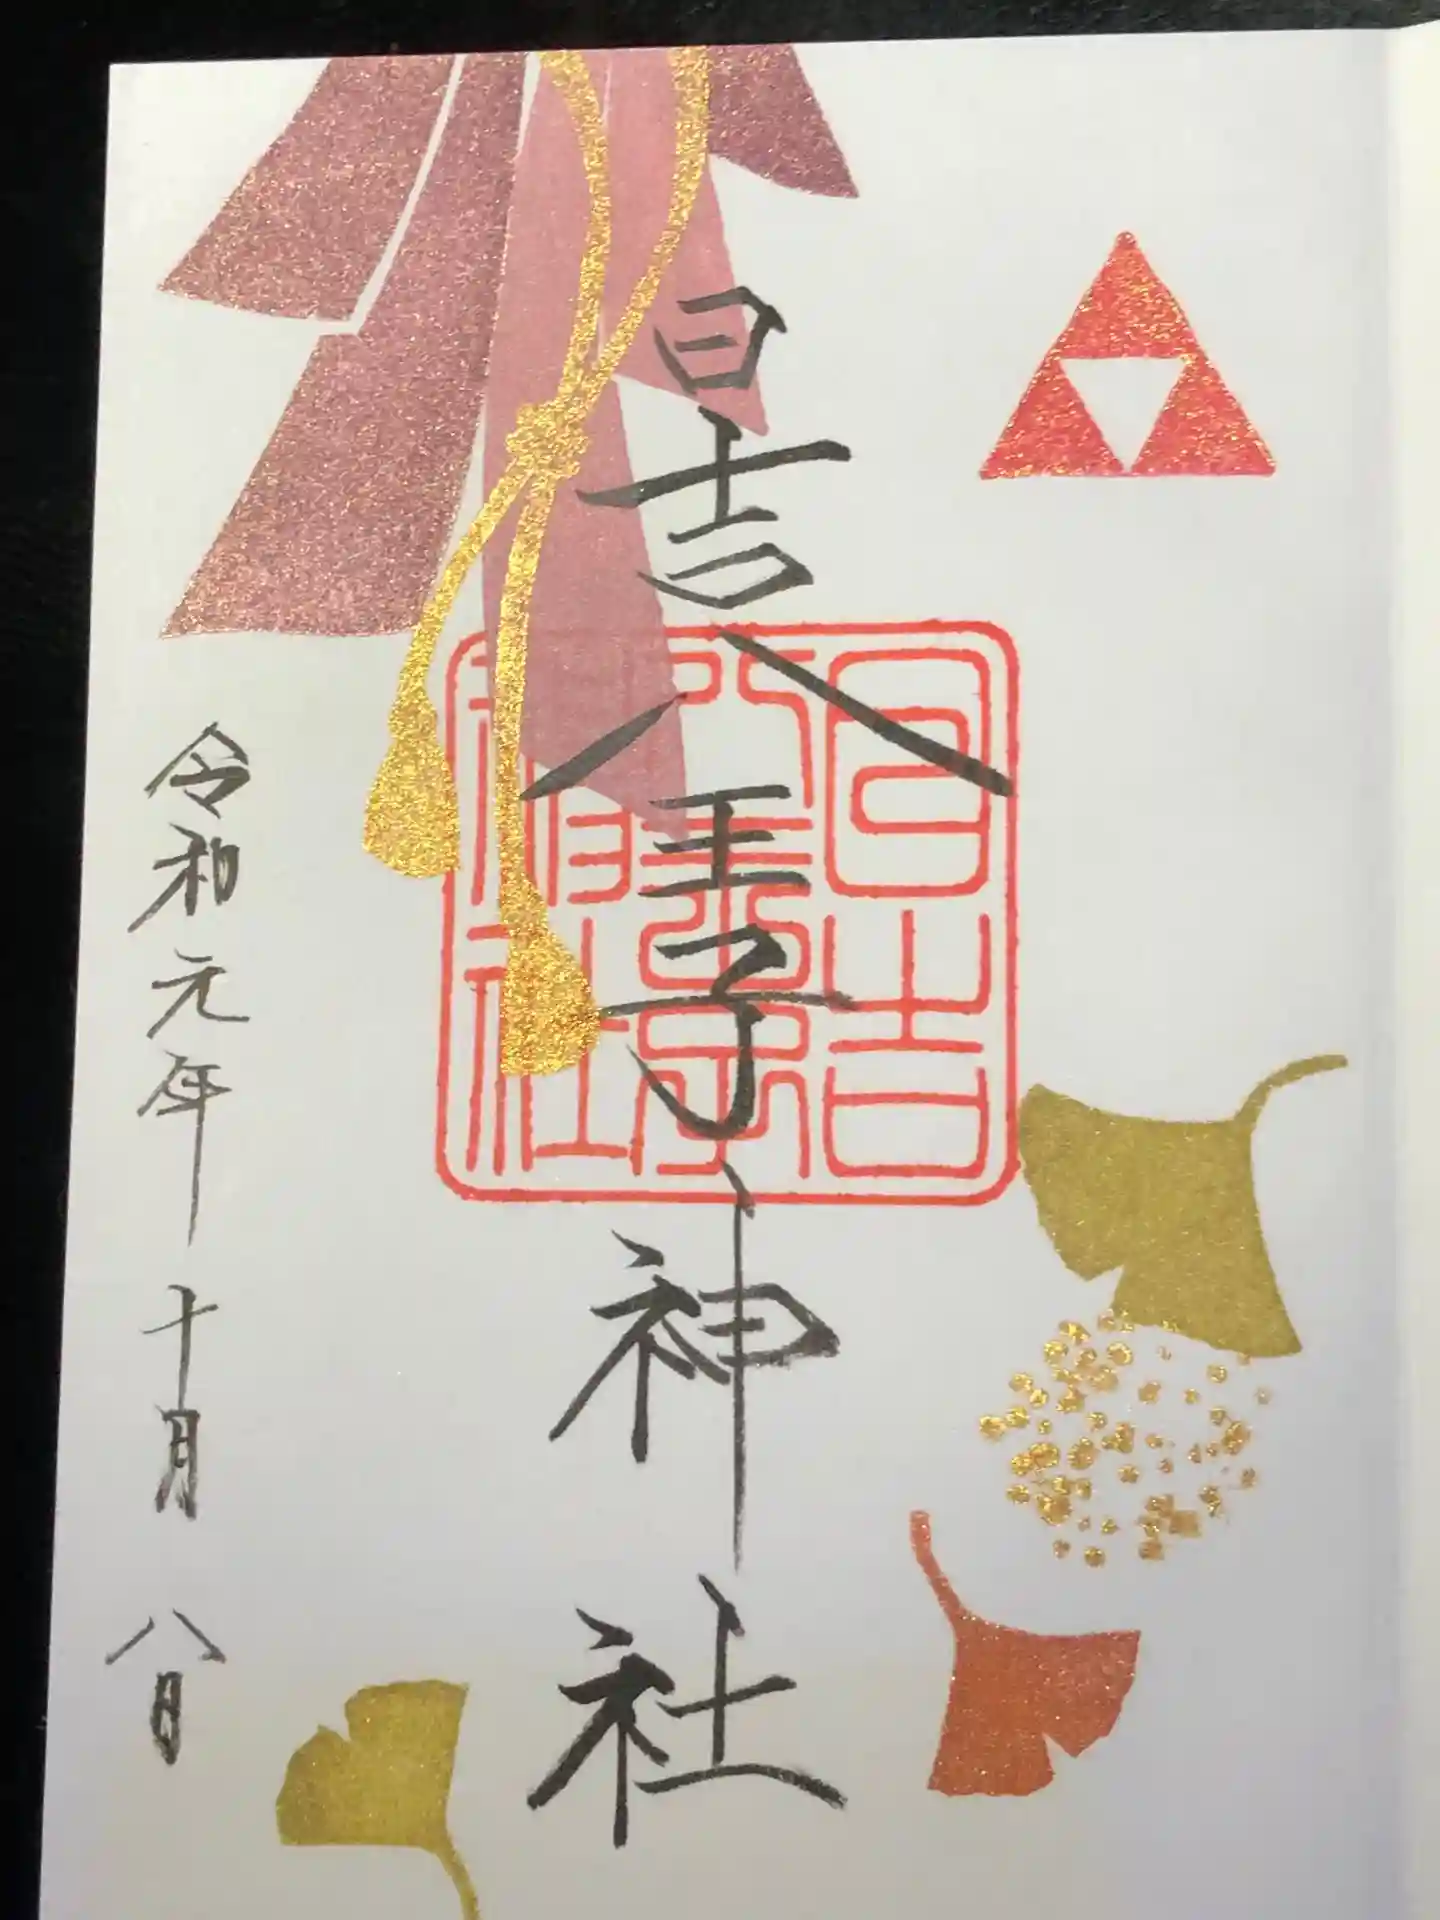 日吉八王子神社
日吉八王子神社
令和元年十月八日